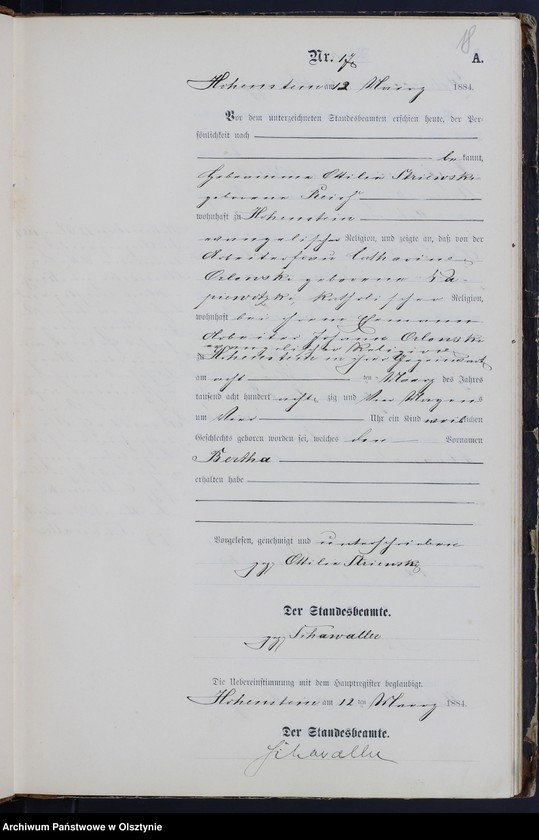 18
Nr. 17
A.
Hohenstein am 12 Maerz 1884.
Vor dem unterzeichneten Standesbeamten erschien heute, der Per-
sönlichkeit nach
be kannt,
Hebeamme Ottilie Striewski
geborene
wohnhaft zu Hohenstein
evangelischer Religion, und zeigte an, daß von der
Arbeiterfrau Catharine
Orlowski geborene
katholischer Religion,
wohnhaft bei ihrem Ehemann
Arbeiter Johann Orlowski
evangelischer Religion
zu Hohenstein in ihrer Gegenwart
am acht ten Maerz des Jahres
tausend acht hundert acht zig und vier Morgens
um vier Uhr ein Kind weiblichen
Geschlechts geboren worden sei, welches den Vornamen
Bertha
erhalten habe
Vorgelesen, genehmigt und unterschrieben
gez. Ottilie Striewski
Der Standesbeamte.
gez. Schawaller
Die Uebereinstimmung mit dem Hauptregister beglaubigt.
Hohenstein am 12 ten Maerz 1884
Der Standesbeamte.
Schawaller
Archiwum Państwowe w Olsztynie